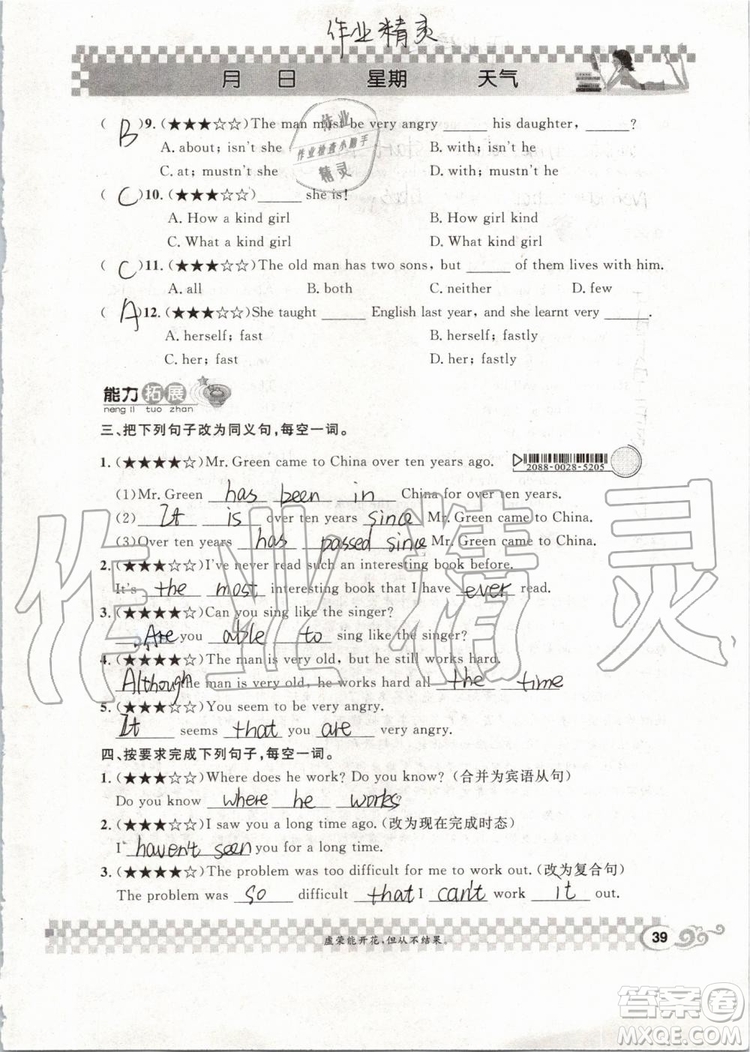 作业精灵
月 日 星期 天气
( B )9. (★★★☆☆)The man must be very angry _____ his daughter, _____?
A. about; isn't she B. with; isn't he
C. at; mustn't she D. with; mustn't he
( C )10. (★★★☆☆)_____ she is!
A. How a kind girl B. How girl kind
C. What a kind girl D. What kind girl
( C )11. (★★★☆☆)The old man has two sons, but _____ of them lives with him.
A. all B. both C. neither D. few
( A )12. (★★★☆☆)She taught _____ English last year, and she learnt very _____.
A. herself; fast B. herself; fastly
C. her; fast D. her; fastly
能力拓展
neng li tuo zhan
三、把下列句子改为同义句,每空一词。
1. (★★★★☆)Mr. Green came to China over ten years ago.
2088-0028-5205
(1)Mr. Green has been in China for over ten years.
(2) It is over ten years since Mr. Green came to China.
(3)Over ten years has passed since Mr. Green came to China.
2. (★★★★☆)I've never read such an interesting book before.
It's the most interesting book that I have ever read.
3. (★★★★☆)Can you sing like the singer?
Are you able to sing like the singer?
4. (★★★★☆)The man is very old, but he still works hard.
Although the man is very old, he works hard all the time.
5. (★★★★☆)You seem to be very angry.
It seems that you are very angry.
四、按要求完成下列句子,每空一词。
1. (★★★☆☆)Where does he work? Do you know? (合并为宾语从句)
Do you know where he works?
2. (★★★☆☆)I saw you a long time ago. (改为现在完成时态)
I haven't seen you for a long time.
3. (★★★★☆)The problem was too difficult for me to work out. (改为复合句)
The problem was so difficult that I can't work it out.
虚荣能开花,但从不结果。
39
作业
作业检查小助手
精灵
作业精灵
答案圈
MXQE.COM